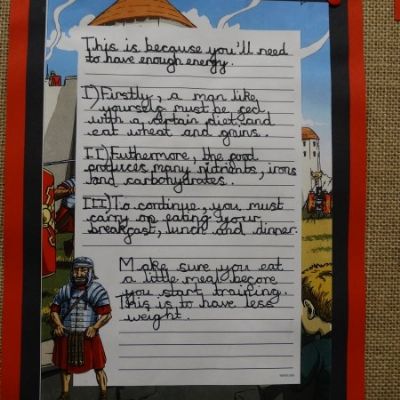 This is because you'll need
to have enough energy.
I) Firstly, a man like
yourself must be fed
with a certain diet and
eat wheat and grains.
II) Futhermore, the food
produces many nutrients, irons
and carbohydrates.
III) To continue, you must
carry on eating your
breakfast, lunch and dinner.
Make sure you eat
a little meal before
you start training.
This is to have less
weight.